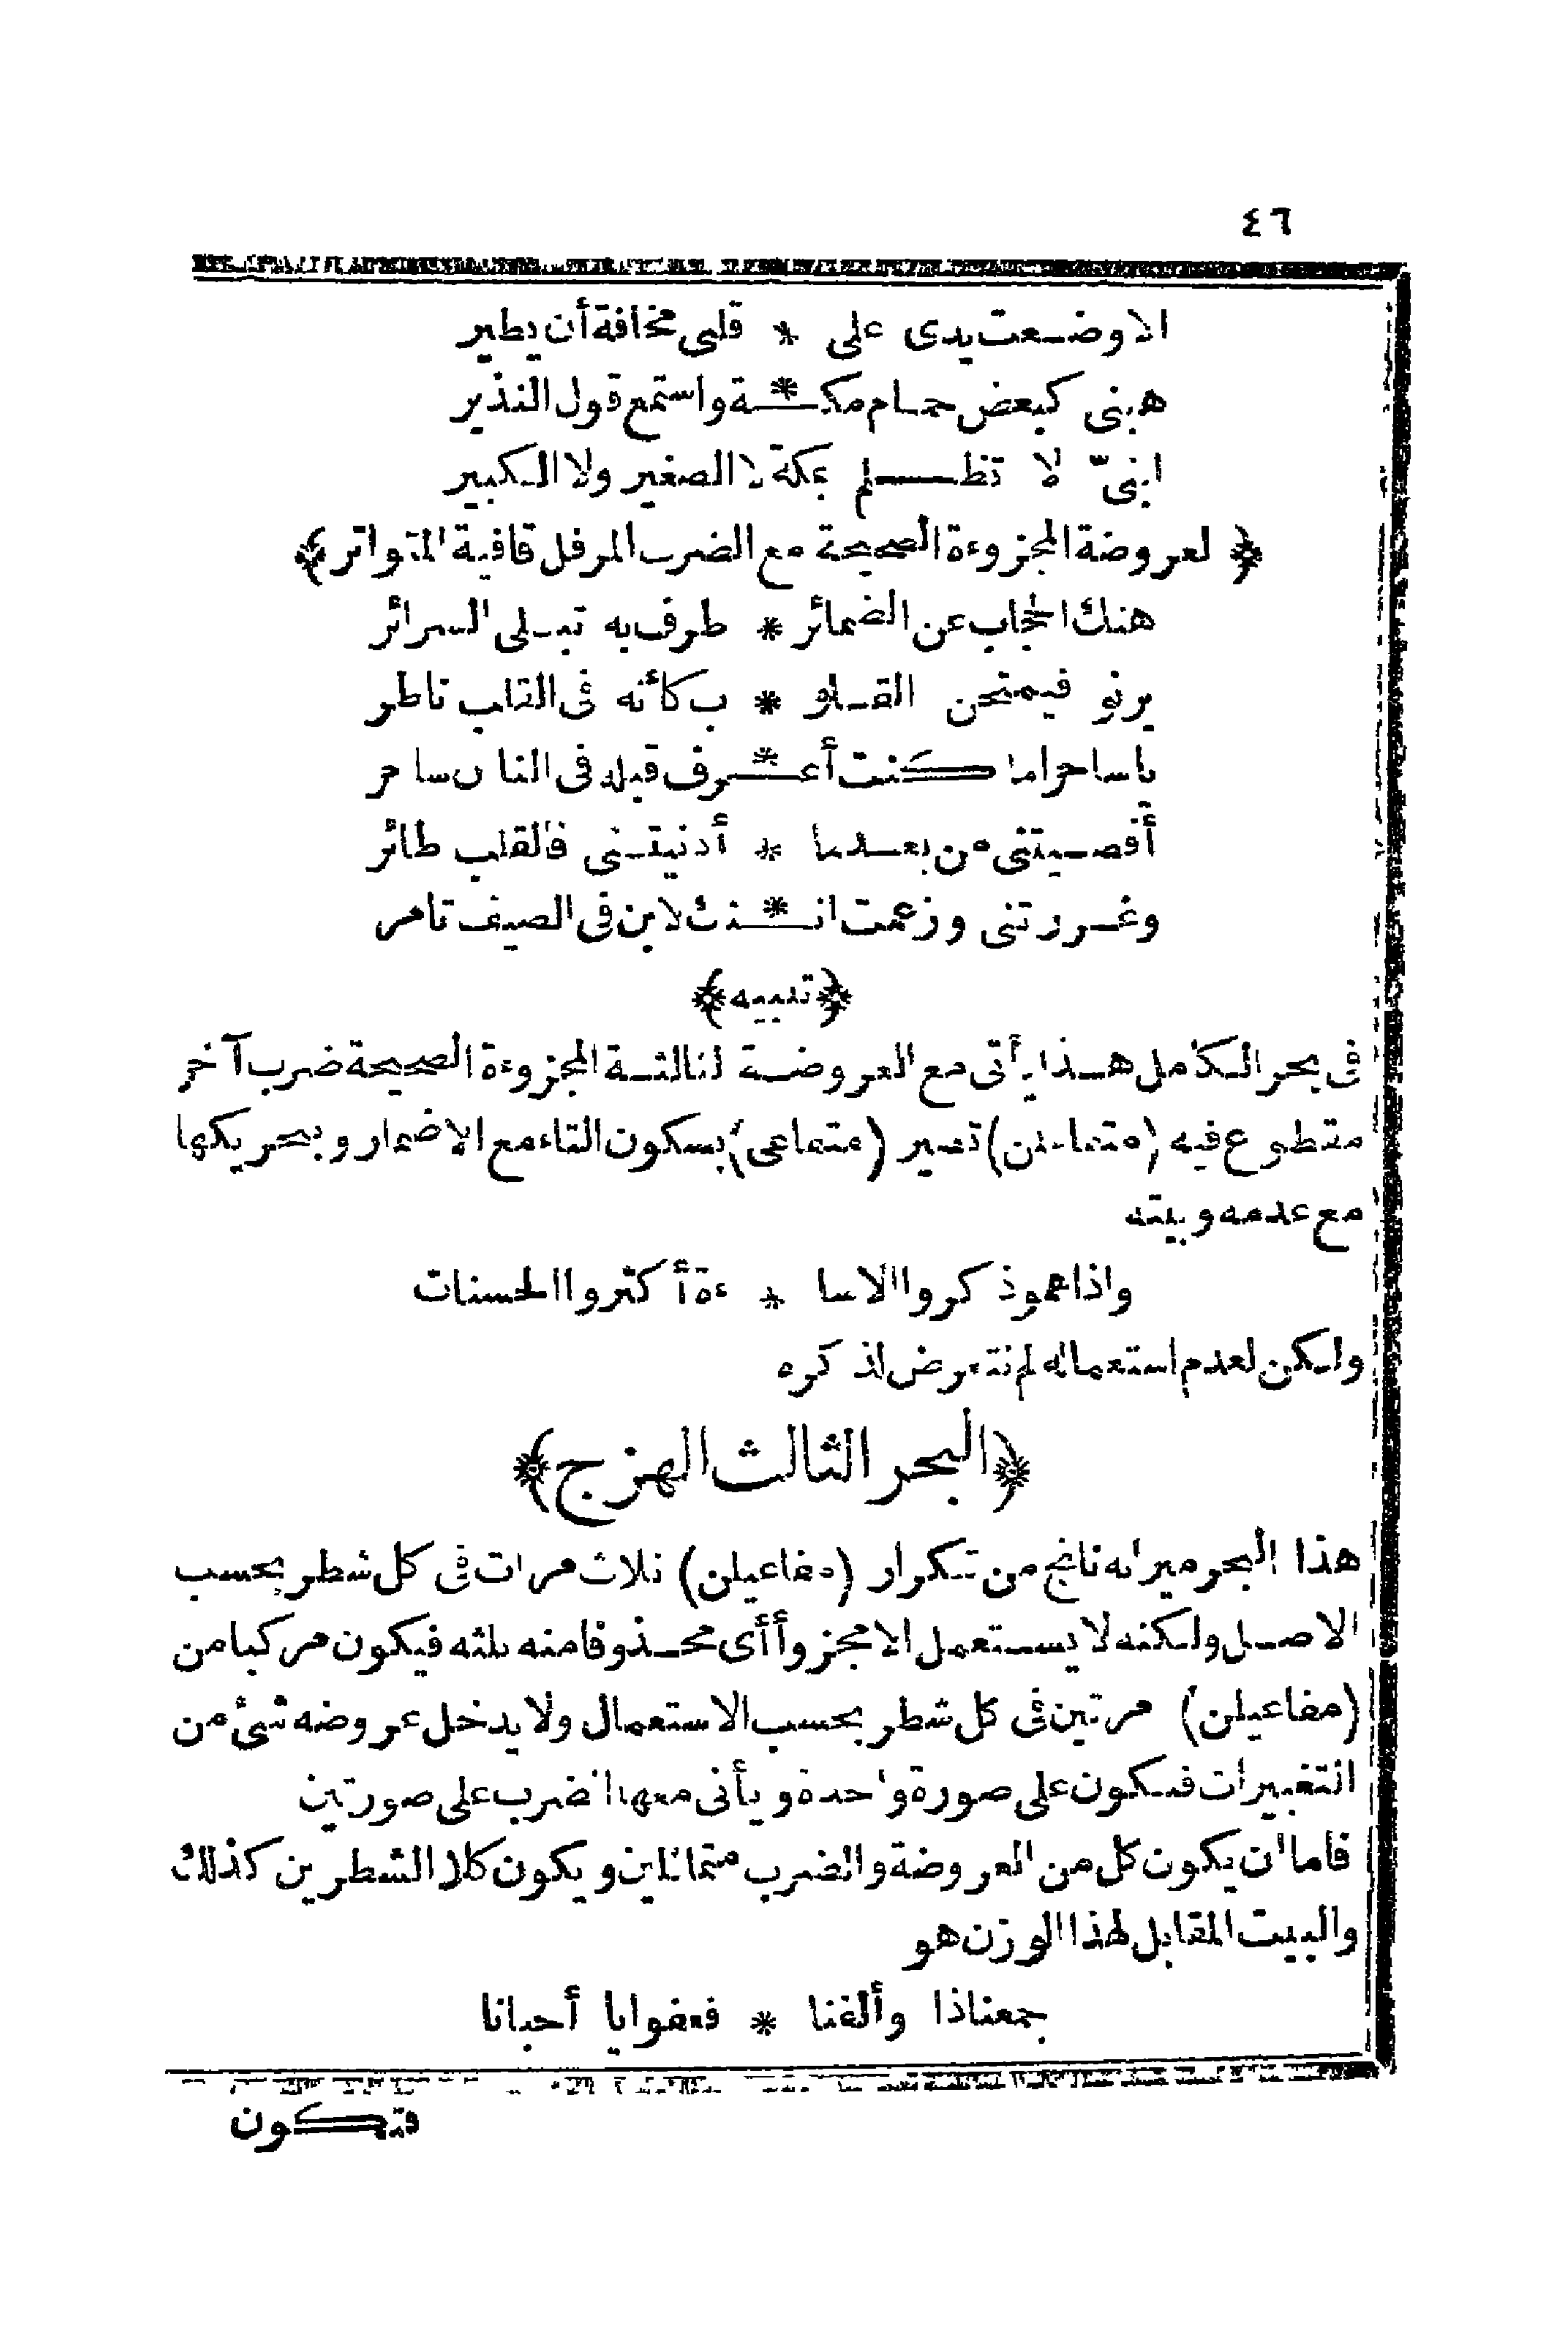 ٤٦
الا وضعت يدى على * قلبى مخافة أن يطير
هبنى كبعض حمام مكـ * ـة واستمع قول النذير
ابنىّ لا تظلم بمكة لا الصغير ولا الكبير
﴿ لعروضة المجزوءة الصحيحة مع الضرب المرفل قافية المتواتر ﴾
هتك الحجاب عن الضمائر * طرف به تبلى السرائر
يرنو فيمتحن القلو * ب كأنه فى القلب ناظر
ياساحرا ما كنت أعـ * ـرف قبله فى الناس ساحر
أقصيتنى من بعد ما * أدنيتنى فالقلب طائر
وغررتنى وزعمت انـ * ـك لابن فى الصيف تامر
﴿ تنبيه ﴾
فى بحر الكامل هذا يأتى مع العروضة الثالثة المجزوءة الصحيحة ضرب آخر
مقطوع فيه (متفاعلن) تصير (متفاعى) بسكون التاء مع الاضمار وبتحريكها
مع عدمه وبيته
واذا همو ذكروا الاسا * ءة أكثروا الحسنات
ولكن لعدم استعماله لم نتعرض لذكره
﴿ البحر الثالث الهزج ﴾
هذا البحر ميزانه ناتج من تكرار (مفاعيلن) ثلاث مرات فى كل شطر بحسب
الاصل ولكنه لا يستعمل الا مجزوأ أى محذوفا منه ثلثه فيكون مركبا من
(مفاعيلن) مرتين فى كل شطر بحسب الاستعمال ولا يدخل عروضه شئ من
التغييرات فتكون على صورة واحدة ويأتى معها الضرب على صورتين
فاما أن يكون كل من العروضة والضرب متماثلين ويكون كلا الشطرين كذلك
والبيت المقابل لهذا الوزن هو
جمعنا ذا وألفنا * فعفوا يا أحبانا
فتكون